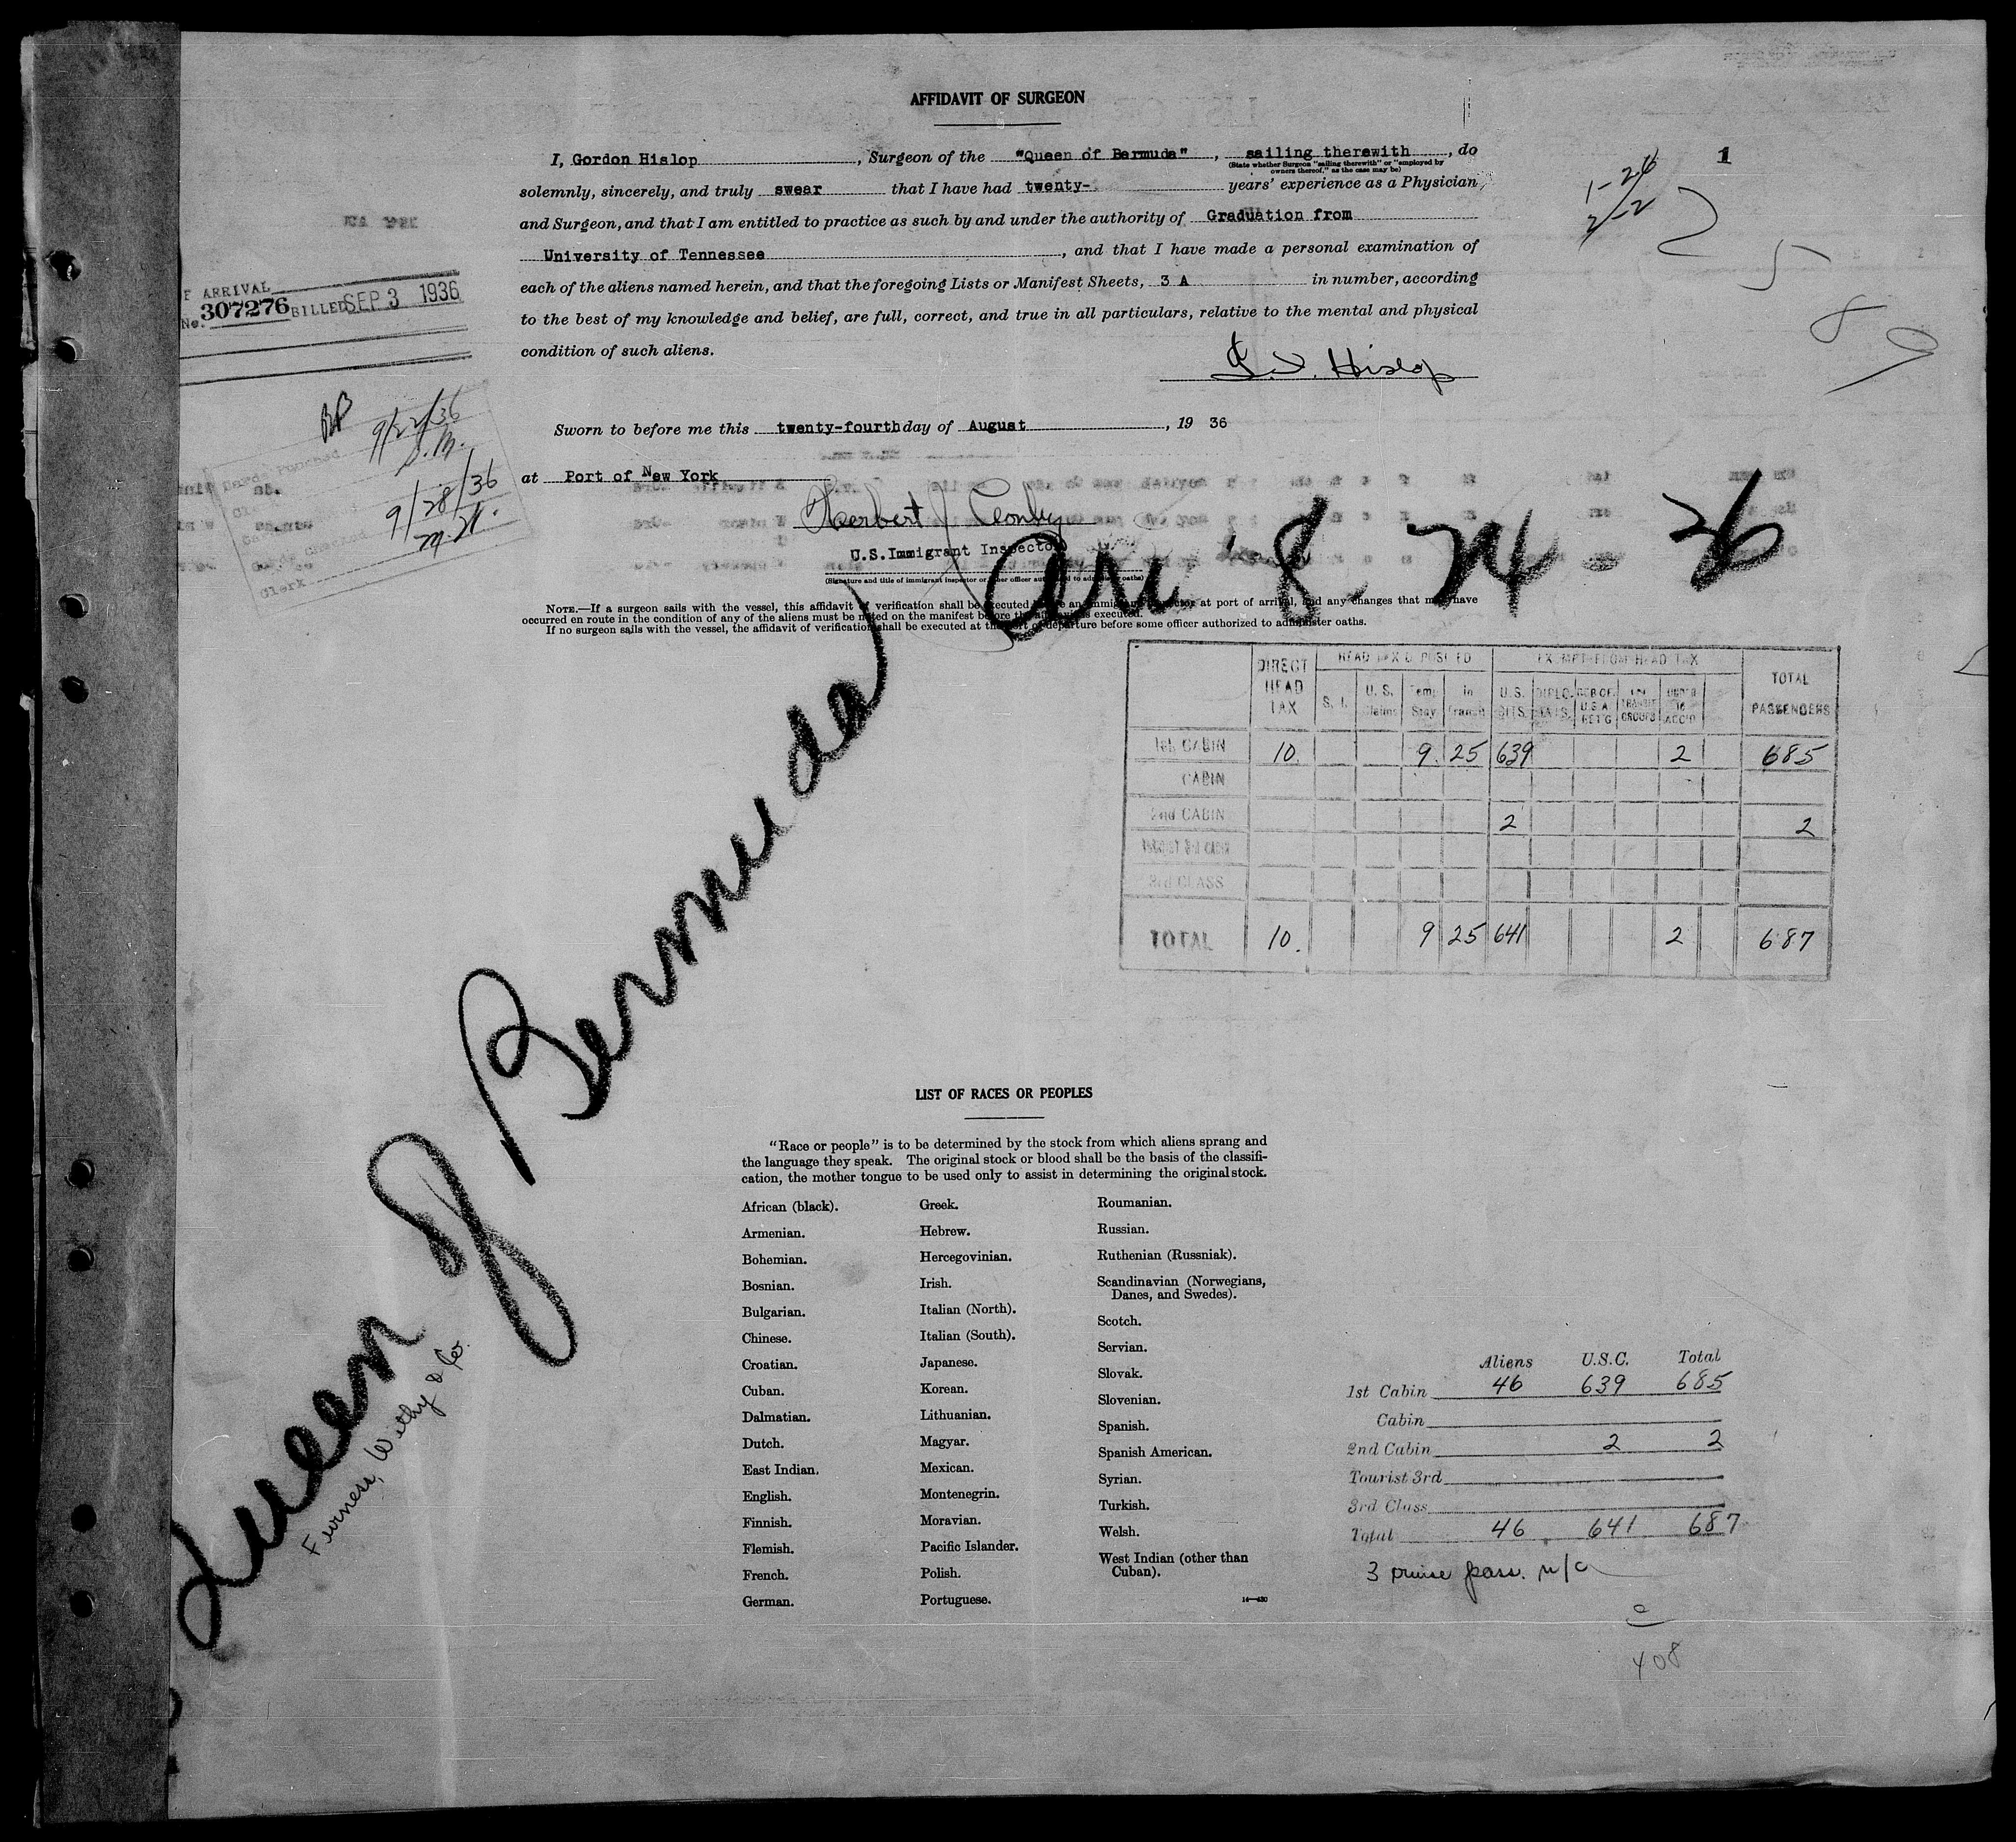 AFFIDAVIT OF SURGEON
I, Gordon Hislop, Surgeon of the "Queen of Bermuda", sailing therewith, do
(State whether Surgeon "sailing therewith" or "employed by
owners thereof," as the case may be)
solemnly, sincerely, and truly swear that I have had twenty- years' experience as a Physician
and Surgeon, and that I am entitled to practice as such by and under the authority of Graduation from
University of Tennessee, and that I have made a personal examination of
each of the aliens named herein, and that the foregoing Lists or Manifest Sheets, 3 A in number, according
to the best of my knowledge and belief, are full, correct, and true in all particulars, relative to the mental and physical
condition of such aliens.
Hislop
Sworn to before me this twenty-fourth day of August, 19 36
at Port of New York
Herbert
U.S. Immigrant Inspector
(Signature and title of immigrant inspector or other officer authorized to administer oaths)
NOTE.—If a surgeon sails with the vessel, this affidavit of verification shall be executed before an immigrant inspector at port of arrival, and any changes that may have
occurred en route in the condition of any of the aliens must be noted on the manifest before the affidavit is executed.
If no surgeon sails with the vessel, the affidavit of verification shall be executed at the port of departure before some officer authorized to administer oaths.
1
1-26
2-2
2 5 8 9
F ARRIVAL
No. 307276 BILLED SEP 3 1936
BB
Cards Punched 9/22/36
S.M.
Clerk
Cards Checked 9/28/36
M.H.
Clerk
Queen of Bermuda Arr. 8-24-36
Furness, Withy & Co.
DIRECT HEAD TAX HEAD TAX DEPOSITED EXEMPT FROM HEAD TAX TOTAL PASSENGERS
S. I. U. S. Claims Temp Stay In Transit U. S. CITS. DIPLOMATS. U.S.A. RET'G IN TRANSIT GROUPS UNDER 16 ACC'D
1st CABIN 10. 9 25 639 2 685
CABIN
2nd CABIN 2 2
TOURIST 3rd CABIN
3rd CLASS
TOTAL 10. 9 25 641 2 687
LIST OF RACES OR PEOPLES
"Race or people" is to be determined by the stock from which aliens sprang and
the language they speak. The original stock or blood shall be the basis of the classifi-
cation, the mother tongue to be used only to assist in determining the original stock.
African (black).
Armenian.
Bohemian.
Bosnian.
Bulgarian.
Chinese.
Croatian.
Cuban.
Dalmatian.
Dutch.
East Indian.
English.
Finnish.
Flemish.
French.
German.
Greek.
Hebrew.
Hercegovinian.
Irish.
Italian (North).
Italian (South).
Japanese.
Korean.
Lithuanian.
Magyar.
Mexican.
Montenegrin.
Moravian.
Pacific Islander.
Polish.
Portuguese.
Roumanian.
Russian.
Ruthenian (Russniak).
Scandinavian (Norwegians,
Danes, and Swedes).
Scotch.
Servian.
Slovak.
Slovenian.
Spanish.
Spanish American.
Syrian.
Turkish.
Welsh.
West Indian (other than
Cuban).
14—430
Aliens U.S.C. Total
1st Cabin 46 639 685
Cabin
2nd Cabin 2 2
Tourist 3rd
3rd Class
Total 46 641 687
3 cruise pass. n/c
408